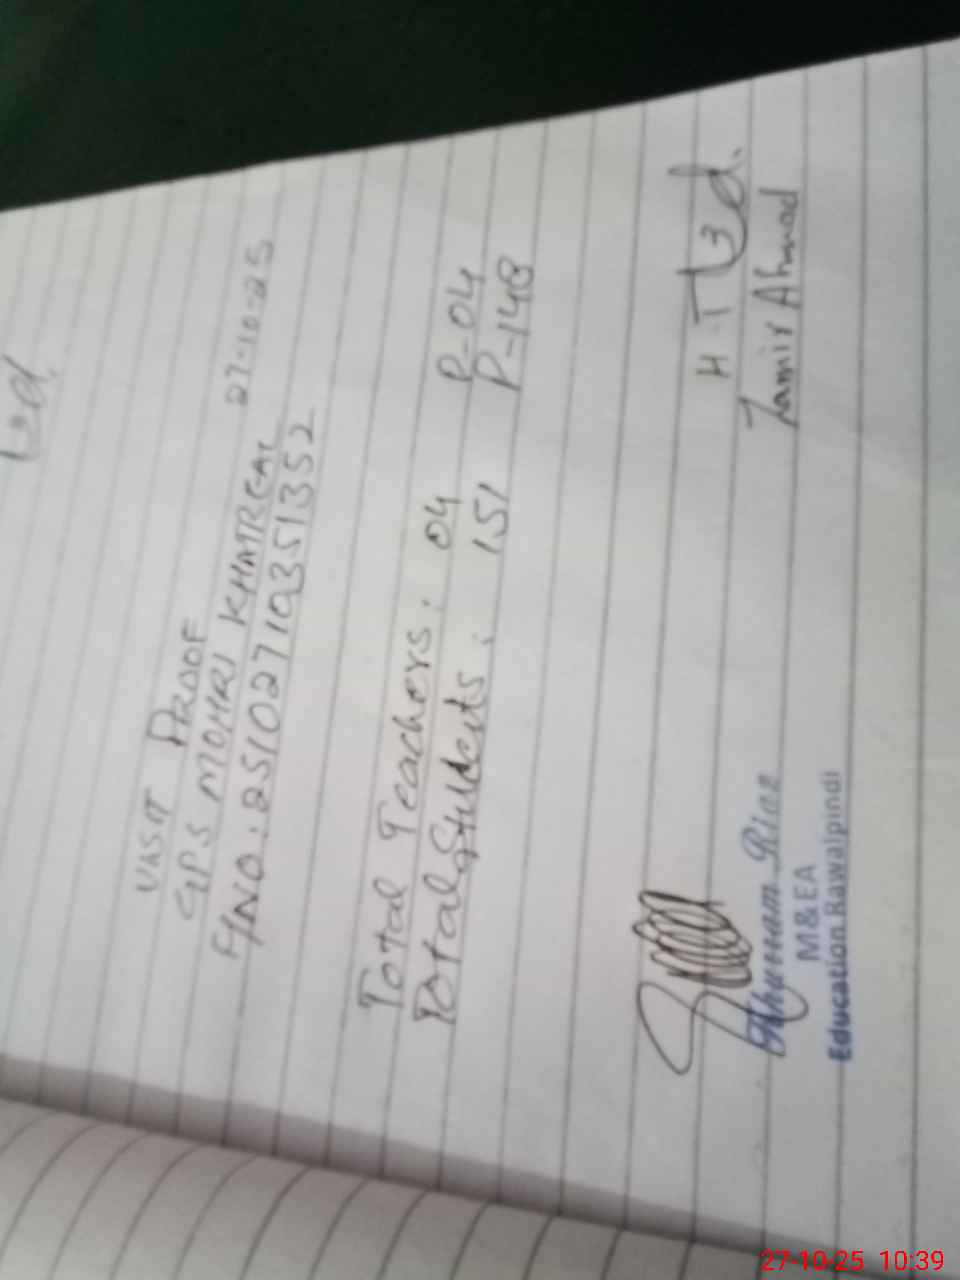 VISIT PROOF
GPS MOHRI KHATREAL 27-10-25
F/NO: 25102710351352
Total Teachers: 04 P-04
Total Students: 151 P-148
H-T
Zamir Ahmad
Riaz
M&EA
Education Rawalpindi
27-10-25 10:39